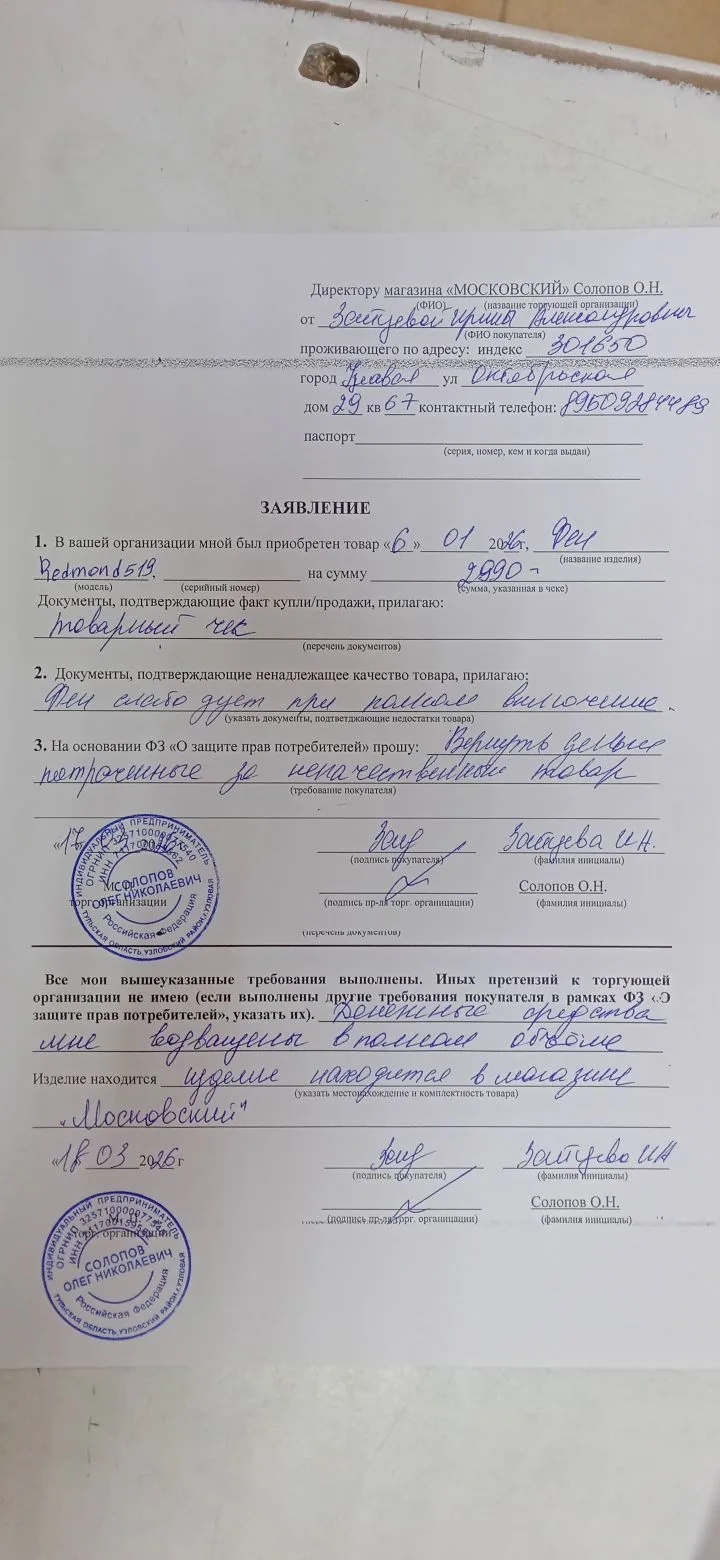 Директору магазина «МОСКОВСКИЙ» Солопов О.Н.
(ФИО) (название торгующей организации)
от Зайцевой Ирины Александрович
(ФИО покупателя)
проживающего по адресу: индекс 301650
город ул Октябрьская
дом 29 кв 67 контактный телефон: 89509284489
паспорт
(серия, номер, кем и когда выдан)
ЗАЯВЛЕНИЕ
1. В вашей организации мной был приобретен товар «6 » 01 2026г, Фен
(название изделия)
Redmond 519, на сумму 2990-
(модель) (серийный номер) (сумма, указанная в чеке)
Документы, подтверждающие факт купли/продажи, прилагаю:
товарный чек
(перечень документов)
2. Документы, подтверждающие ненадлежащее качество товара, прилагаю:
Фен слабо дует при полном включение.
(указать документы, подтветджающие недостатки товара)
3. На основании ФЗ «О защите прав потребителей» прошу: Вернуть деньги
потраченные за некачественный товар
(требование покупателя)
«17 Зайцева И.А.
(подпись покупателя) (фамилия инициалы)
М.П. Солопов О.Н.
торг. организации (подпись пр-ля торг. органицации) (фамилия инициалы)
ИНДИВИДУАЛЬНЫЙ ПРЕДПРИНИМАТЕЛЬ
СОЛОПОВ
ОЛЕГ НИКОЛАЕВИЧ
Российская Федерация
ТУЛЬСКАЯ ОБЛАСТЬ, УЗЛОВСКИЙ РАЙОН, г. УЗЛОВАЯ
(перечень документов)
Все мои вышеуказанные требования выполнены. Иных претензий к торгующей
организации не имею (если выполнены другие требования покупателя в рамках ФЗ «О
защите прав потребителей», указать их). Денежные средства
мне возвращены в полном объёме
Изделие находится изделие находится в магазине
(указать местонахождение и комплектность товара)
"Московский"
«18 03 2026г Зайцева ИА
(подпись покупателя) (фамилия инициалы)
Солопов О.Н.
М.П. (подпись пр-ля торг. органицации) (фамилия инициалы)
торг. организации
ИНДИВИДУАЛЬНЫЙ ПРЕДПРИНИМАТЕЛЬ
СОЛОПОВ
ОЛЕГ НИКОЛАЕВИЧ
Российская Федерация
ТУЛЬСКАЯ ОБЛАСТЬ, УЗЛОВСКИЙ РАЙОН, г. УЗЛОВАЯ